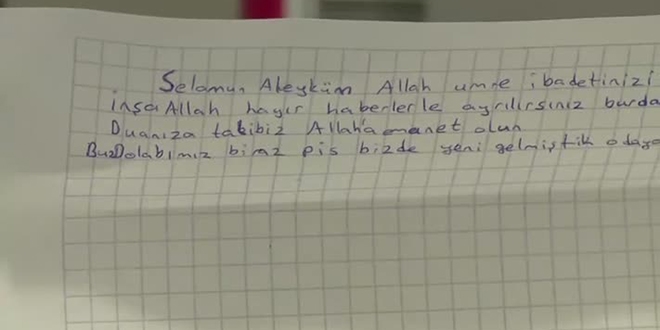 Selamun Aleyküm Allah umre ibadetinizi
inşa Allah hayır haberlerle ayrılırsınız burda
Duanıza talibiz Allah'a emanet olun
BuzDolabımız biraz pis bizde yeni gelmiştik odaya